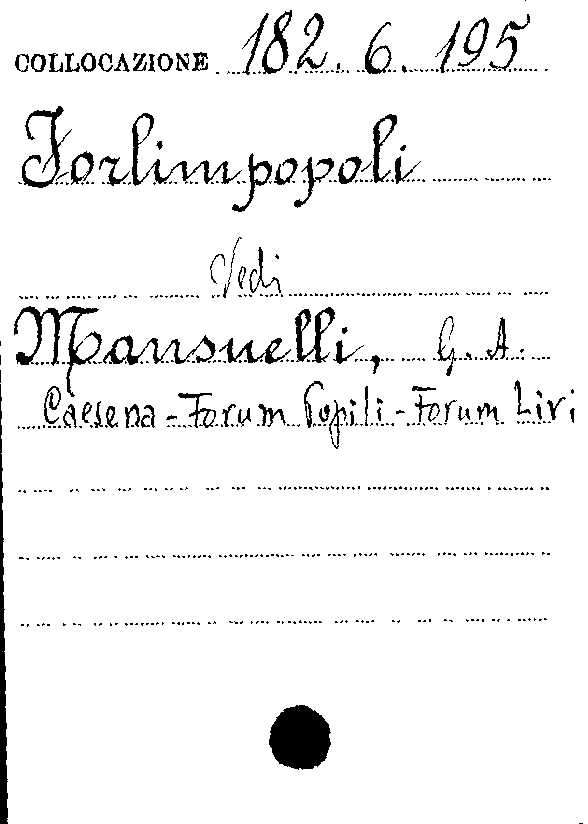 COLLOCAZIONE 182. 6. 195
Forlimpopoli
Vedi
Mansuelli, G. A.
Caesena - Forum Popili - Forum Livi